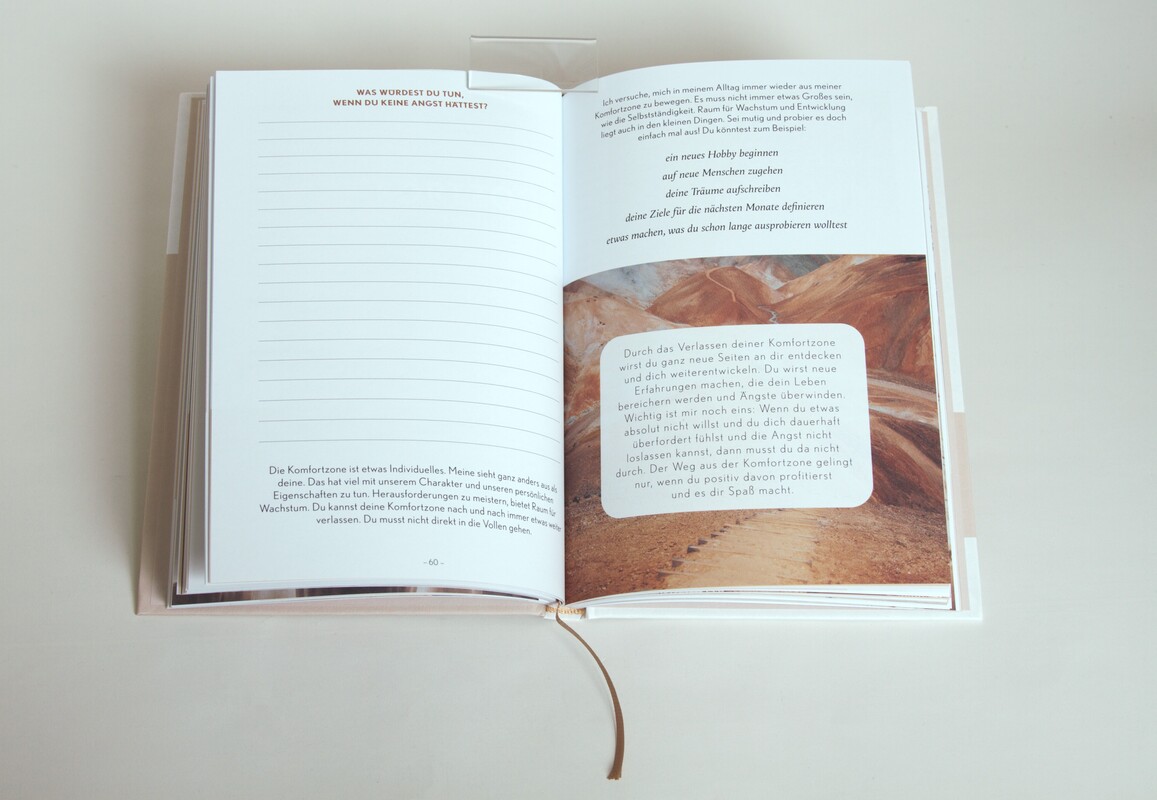 WAS WÜRDEST DU TUN,
WENN DU KEINE ANGST HÄTTEST?
Die Komfortzone ist etwas Individuelles. Meine sieht ganz anders aus als
deine. Das hat viel mit unserem Charakter und unseren persönlichen
Eigenschaften zu tun. Herausforderungen zu meistern, bietet Raum für
Wachstum. Du kannst deine Komfortzone nach und nach immer etwas weiter
verlassen. Du musst nicht direkt in die Vollen gehen.
– 60 –
Ich versuche, mich in meinem Alltag immer wieder aus meiner
Komfortzone zu bewegen. Es muss nicht immer etwas Großes sein,
wie die Selbstständigkeit. Raum für Wachstum und Entwicklung
liegt auch in den kleinen Dingen. Sei mutig und probier es doch
einfach mal aus! Du könntest zum Beispiel:
ein neues Hobby beginnen
auf neue Menschen zugehen
deine Träume aufschreiben
deine Ziele für die nächsten Monate definieren
etwas machen, was du schon lange ausprobieren wolltest
Durch das Verlassen deiner Komfortzone
wirst du ganz neue Seiten an dir entdecken
und dich weiterentwickeln. Du wirst neue
Erfahrungen machen, die dein Leben
bereichern werden und Ängste überwinden.
Wichtig ist mir noch eins: Wenn du etwas
absolut nicht willst und du dich dauerhaft
überfordert fühlst und die Angst nicht
loslassen kannst, dann musst du da nicht
durch. Der Weg aus der Komfortzone gelingt
nur, wenn du positiv davon profitierst
und es dir Spaß macht.